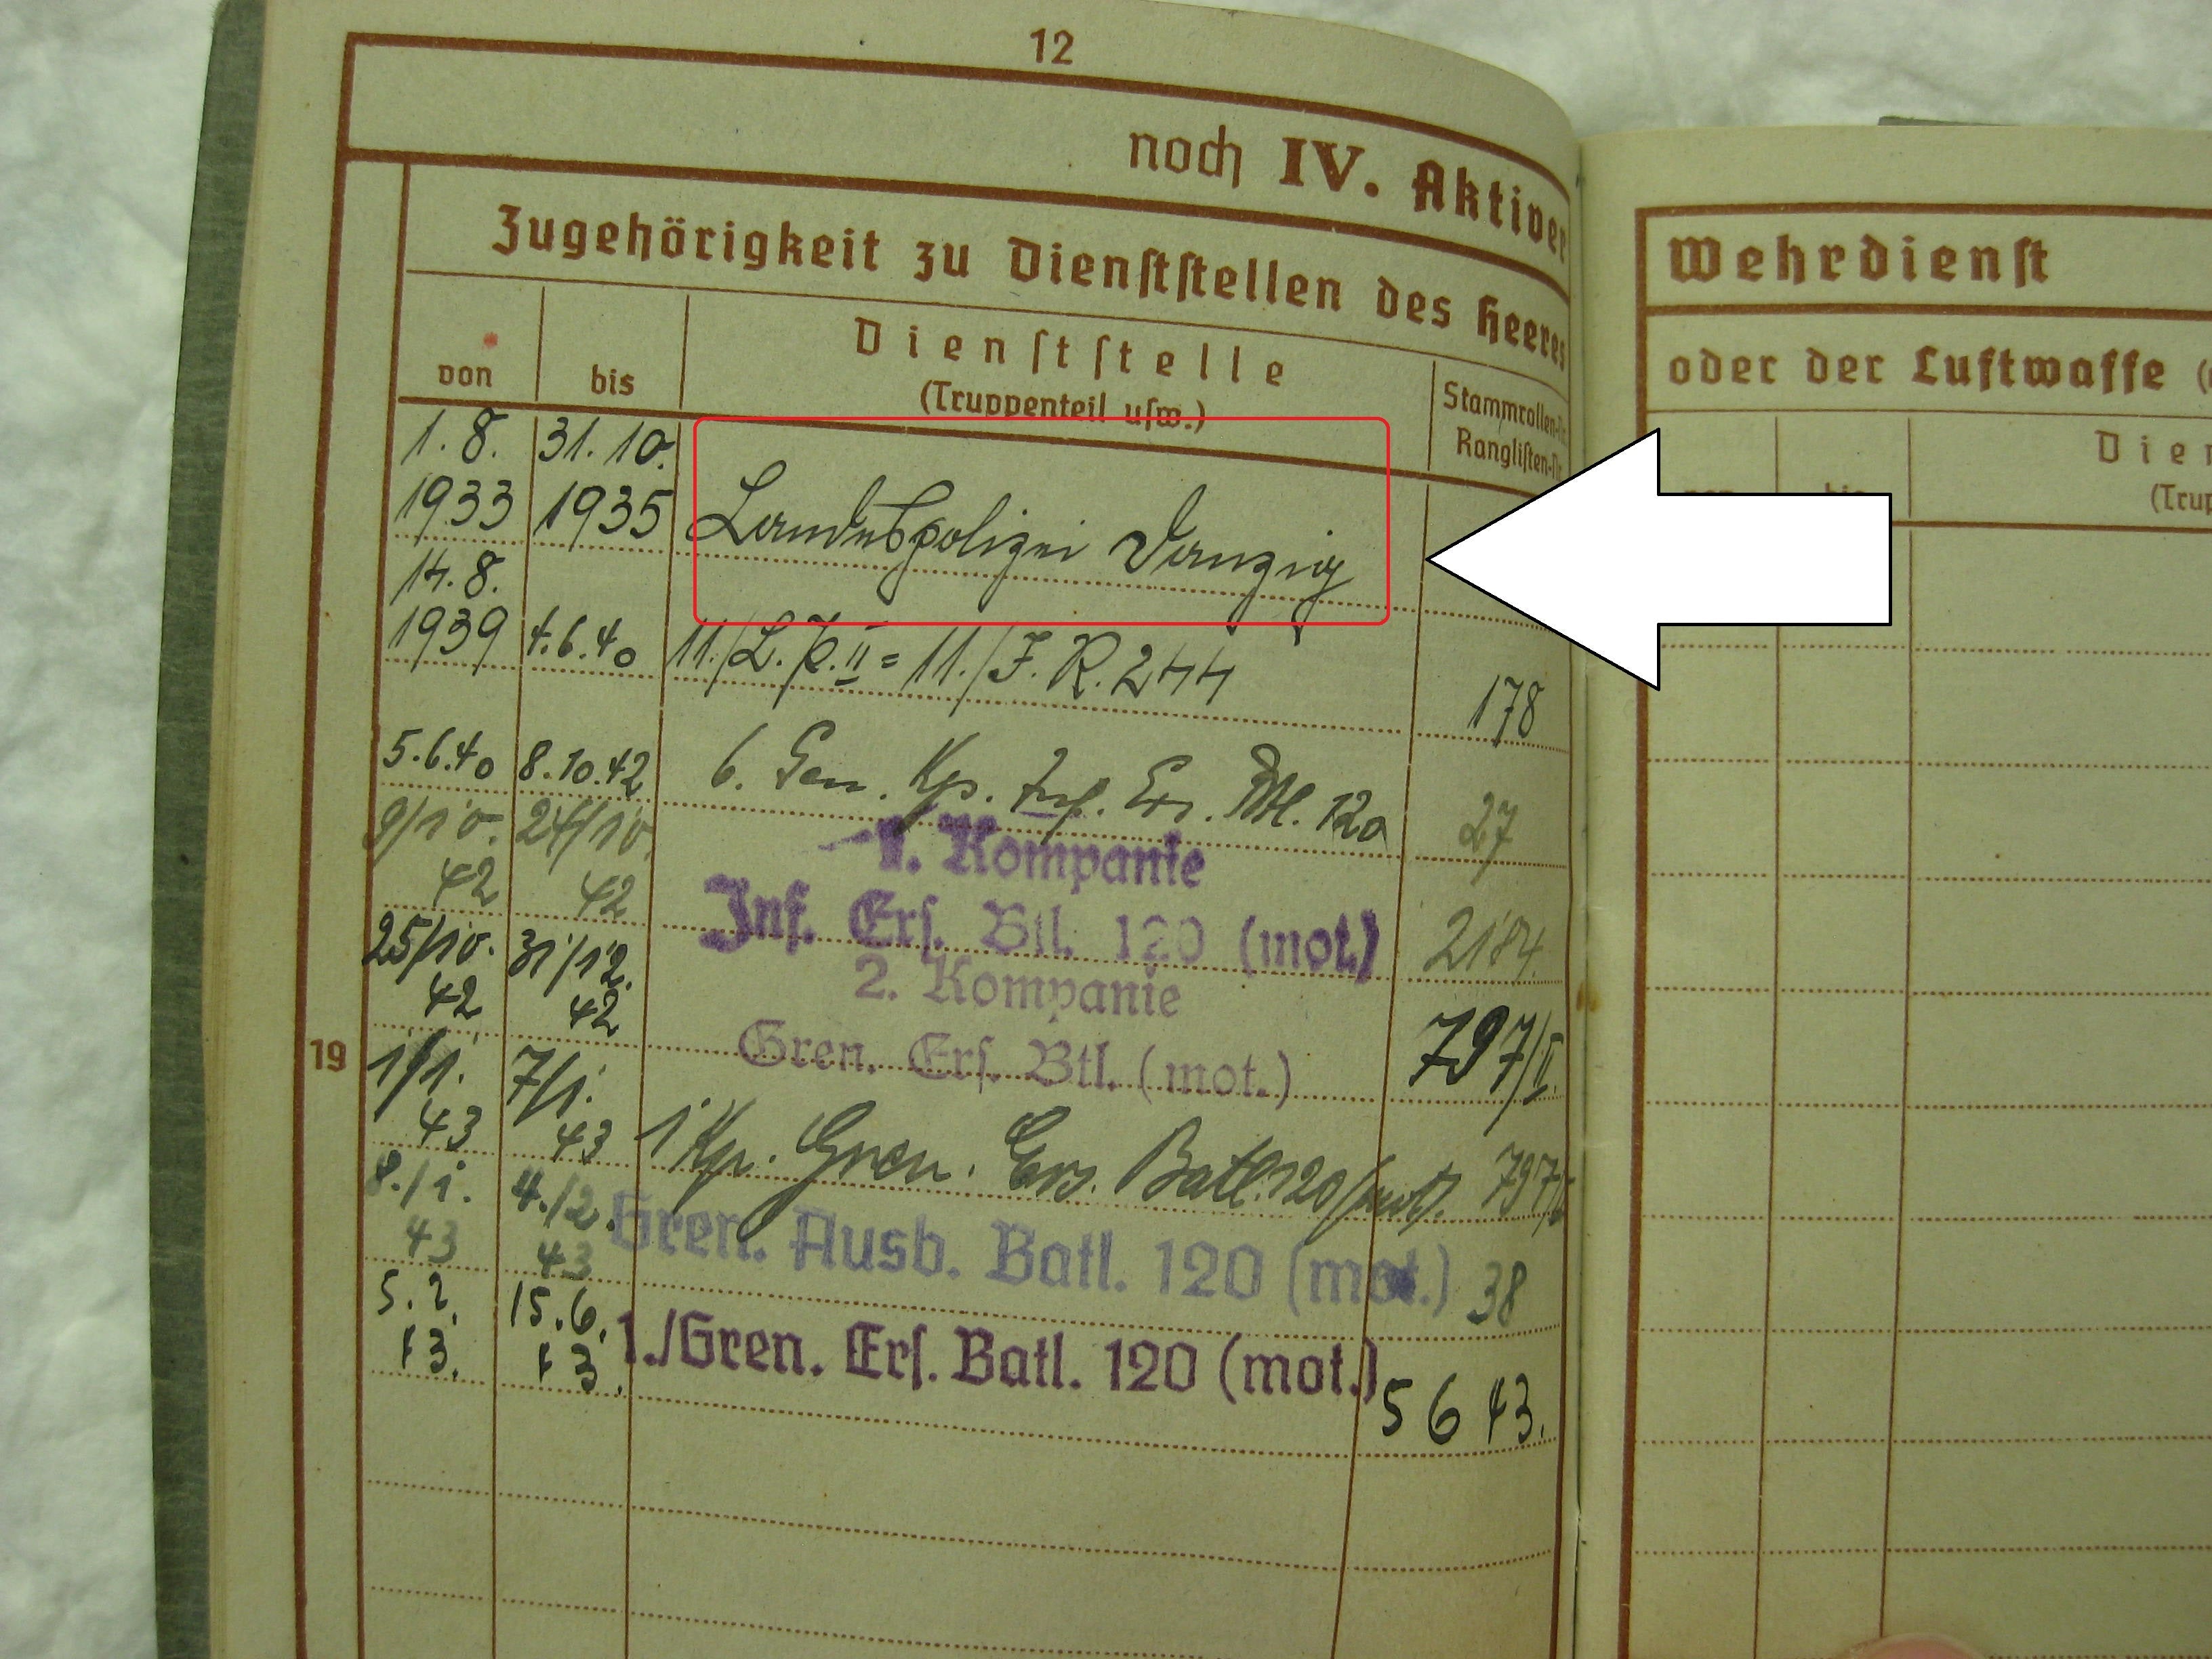 12
noch IV. Aktiver
Zugehörigkeit zu Dienststellen des Heeres
von bis Dienststelle
(Truppenteil usw.)
Stammrollen-Nr.
Ranglisten-Nr.
1.8. 31.10.
1933 1935 Landespolizei Danzig
14.8.
1939 4.6.40 11./L.P.II = 11./J.R.244 178
5.6.40 8.10.42 6. Gen. Kp. Inf. Ers. Btl. 120 27
9/10. 24/10.
42 42
1. Kompanie
Inf. Ers. Btl. 120 (mot.) 2184.
25/10. 31/12.
42 42
2. Kompanie
Gren. Ers. Btl. (mot.) 797/II.
19
1/1. 7/1.
43 43 1 Kp. Gren. Ers. Batl. 120 (mot). 797/
8./1. 4./2.
43 43 Gren. Ausb. Batl. 120 (mot.) 38
5.2. 15.6.
43. 43. 1./Gren. Ers. Batl. 120 (mot.) 5643.
Wehrdienst
oder der Luftwaffe